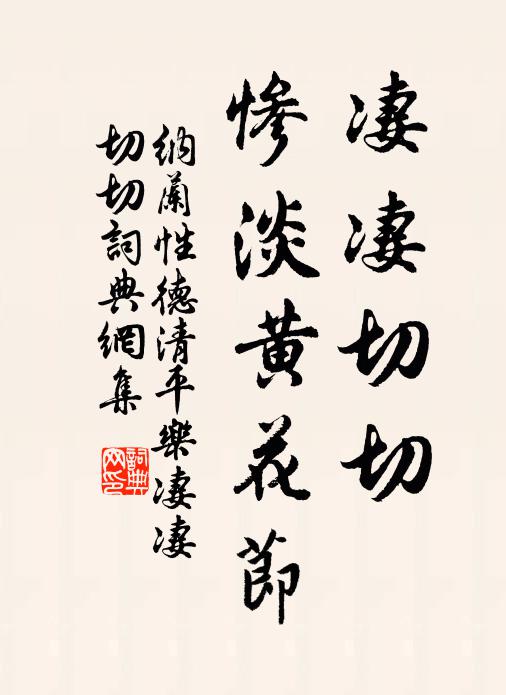 凄凄切切
慘淡黃花節
納蘭性德清平樂凄凄
切切詞典網集
詞典
网印